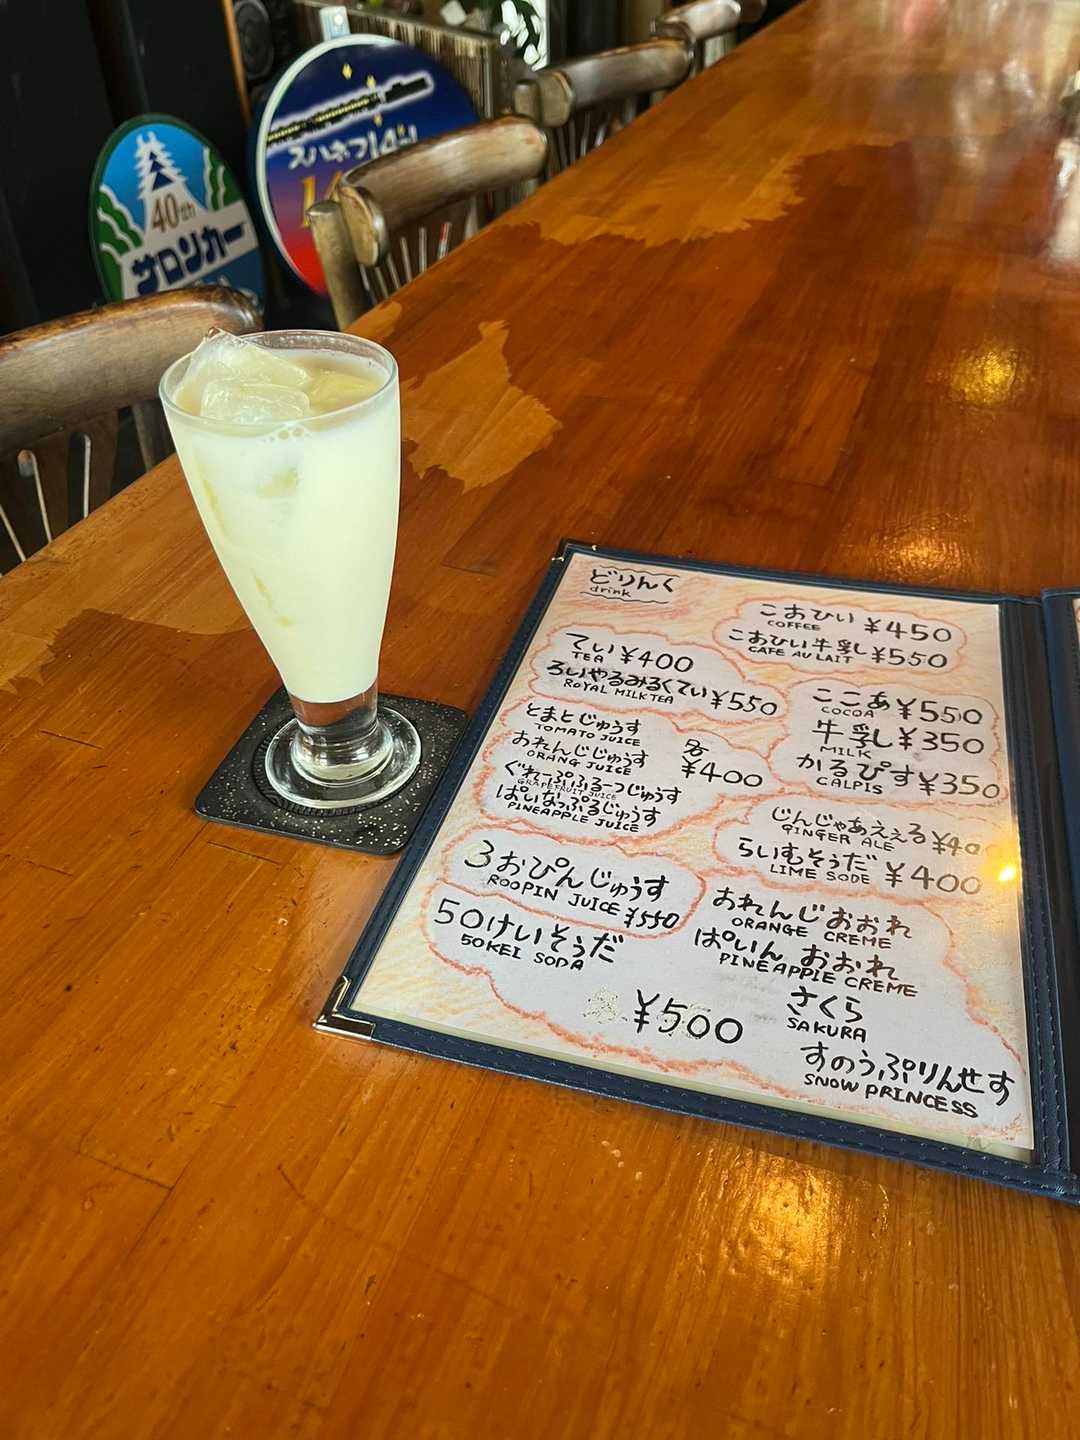 40th
サロンカー
スハネフ14形
どりんく
drink
こおひい ¥450
COFFEE
こおひい牛乳し ¥550
CAFE AU LAIT
てい ¥400
TEA
ろいやるみるくてい ¥550
ROYAL MILK TEA
ここあ ¥550
COCOA
牛乳し ¥350
MILK
かるぴす ¥350
CALPIS
とまとじゅうす
TOMATO JUICE
おれんじじゅうす
ORANG JUICE
ぐれーぷふるーつじゅうす
GRAPEFRUIT JUICE
ぱいなっぷるじゅうす
PINEAPPLE JUICE
各
¥400
じんじゃあええる ¥400
GINGER ALE
らいむそうだ ¥400
LIME SODE
ろおぴんじゅうす
ROOPIN JUICE ¥550
50けいそうだ
50KEI SODA
おれんじおおれ
ORANGE CREME
ぱいん おおれ
PINEAPPIE CREME
さくら
SAKURA
すのうぷりんせす
SNOW PRINCESS
¥500